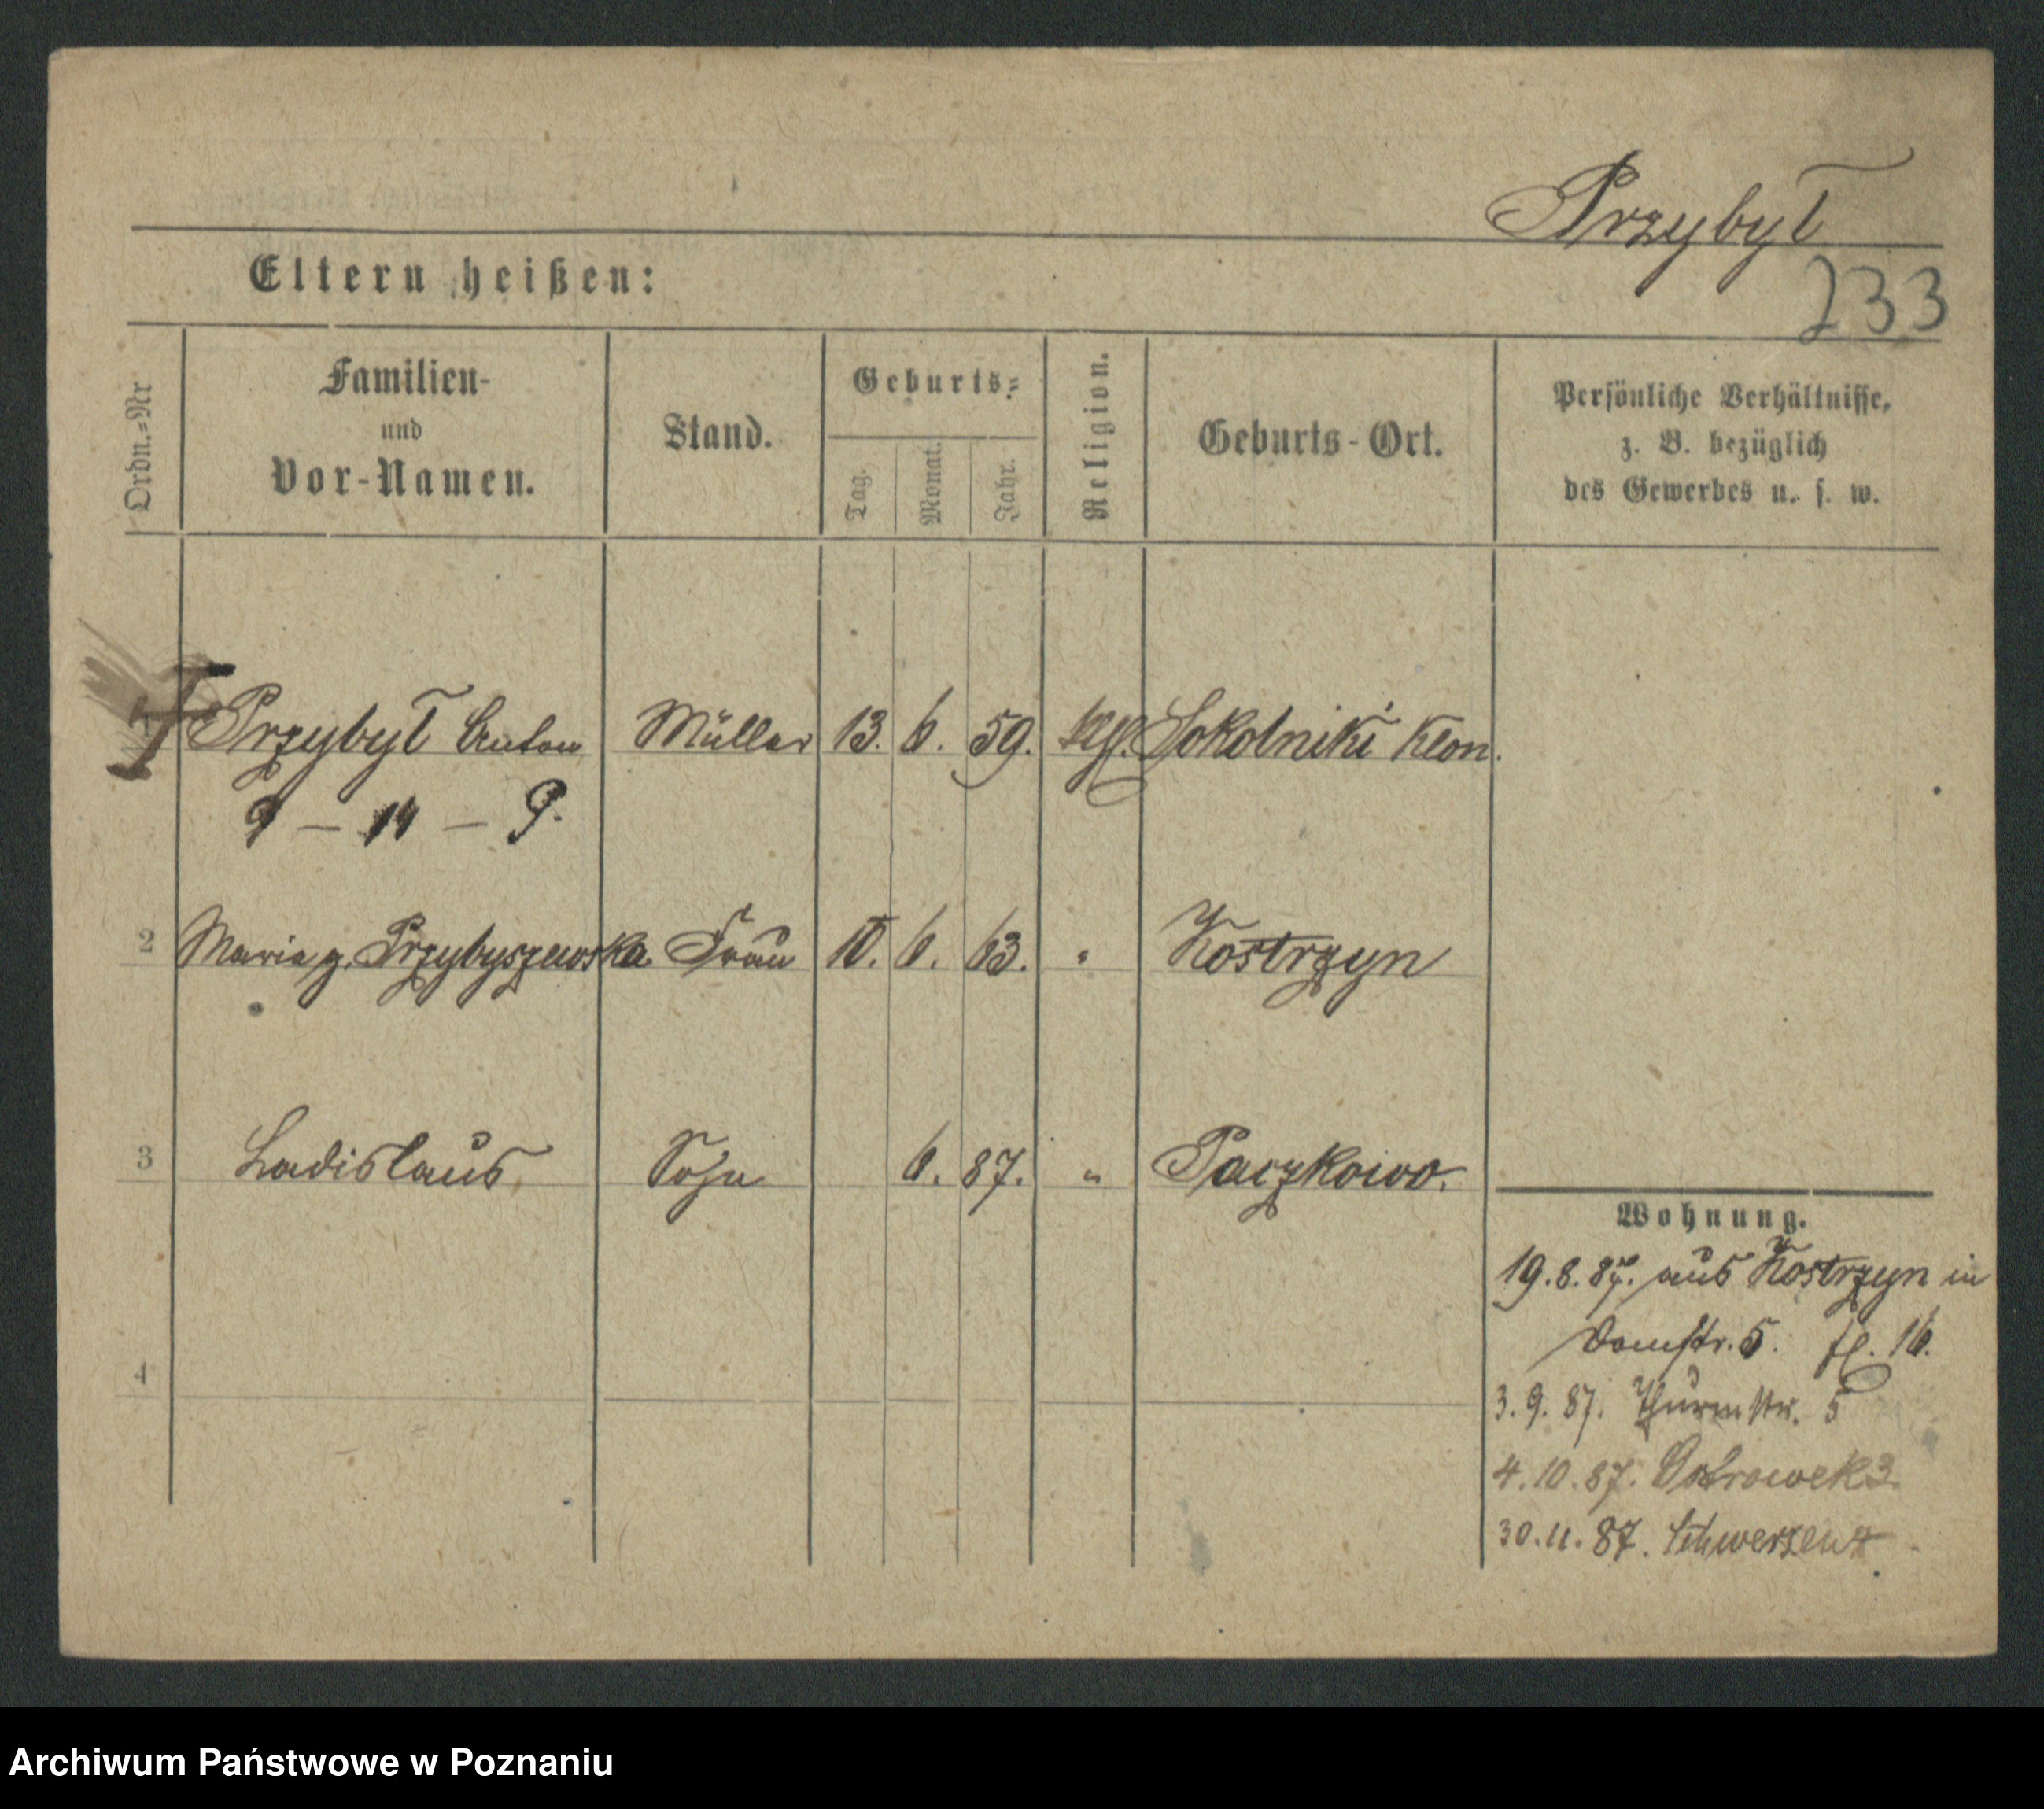 Przybył
233
Eltern heißen:
Ordn.=Nr
Familien-
und
Vor-Namen.
Stand.
Geburts=
Tag.
Monat.
Jahr.
Religion.
Geburts-Ort.
Persönliche Verhältnisse,
z. B. bezüglich
des Gewerbes u. s. w.
Przybył Anton Müller 13. 6. 59. Sokolniki Klon.
9 — 14 — P.
2 Maria g. Przybyszewska Frau 10. 6. 63. " Kostrzyn
3 Ladislaus Sohn 6. 87. " Paczkowo.
4
Wohnung.
19.8.87. aus Kostrzyn in
Domstr. 5. fl. 16.
3.9.87. Thurmstr. 5
4.10.87. Ostrowek 3.
30.11.87. Schwersenz
Archiwum Państwowe w Poznaniu